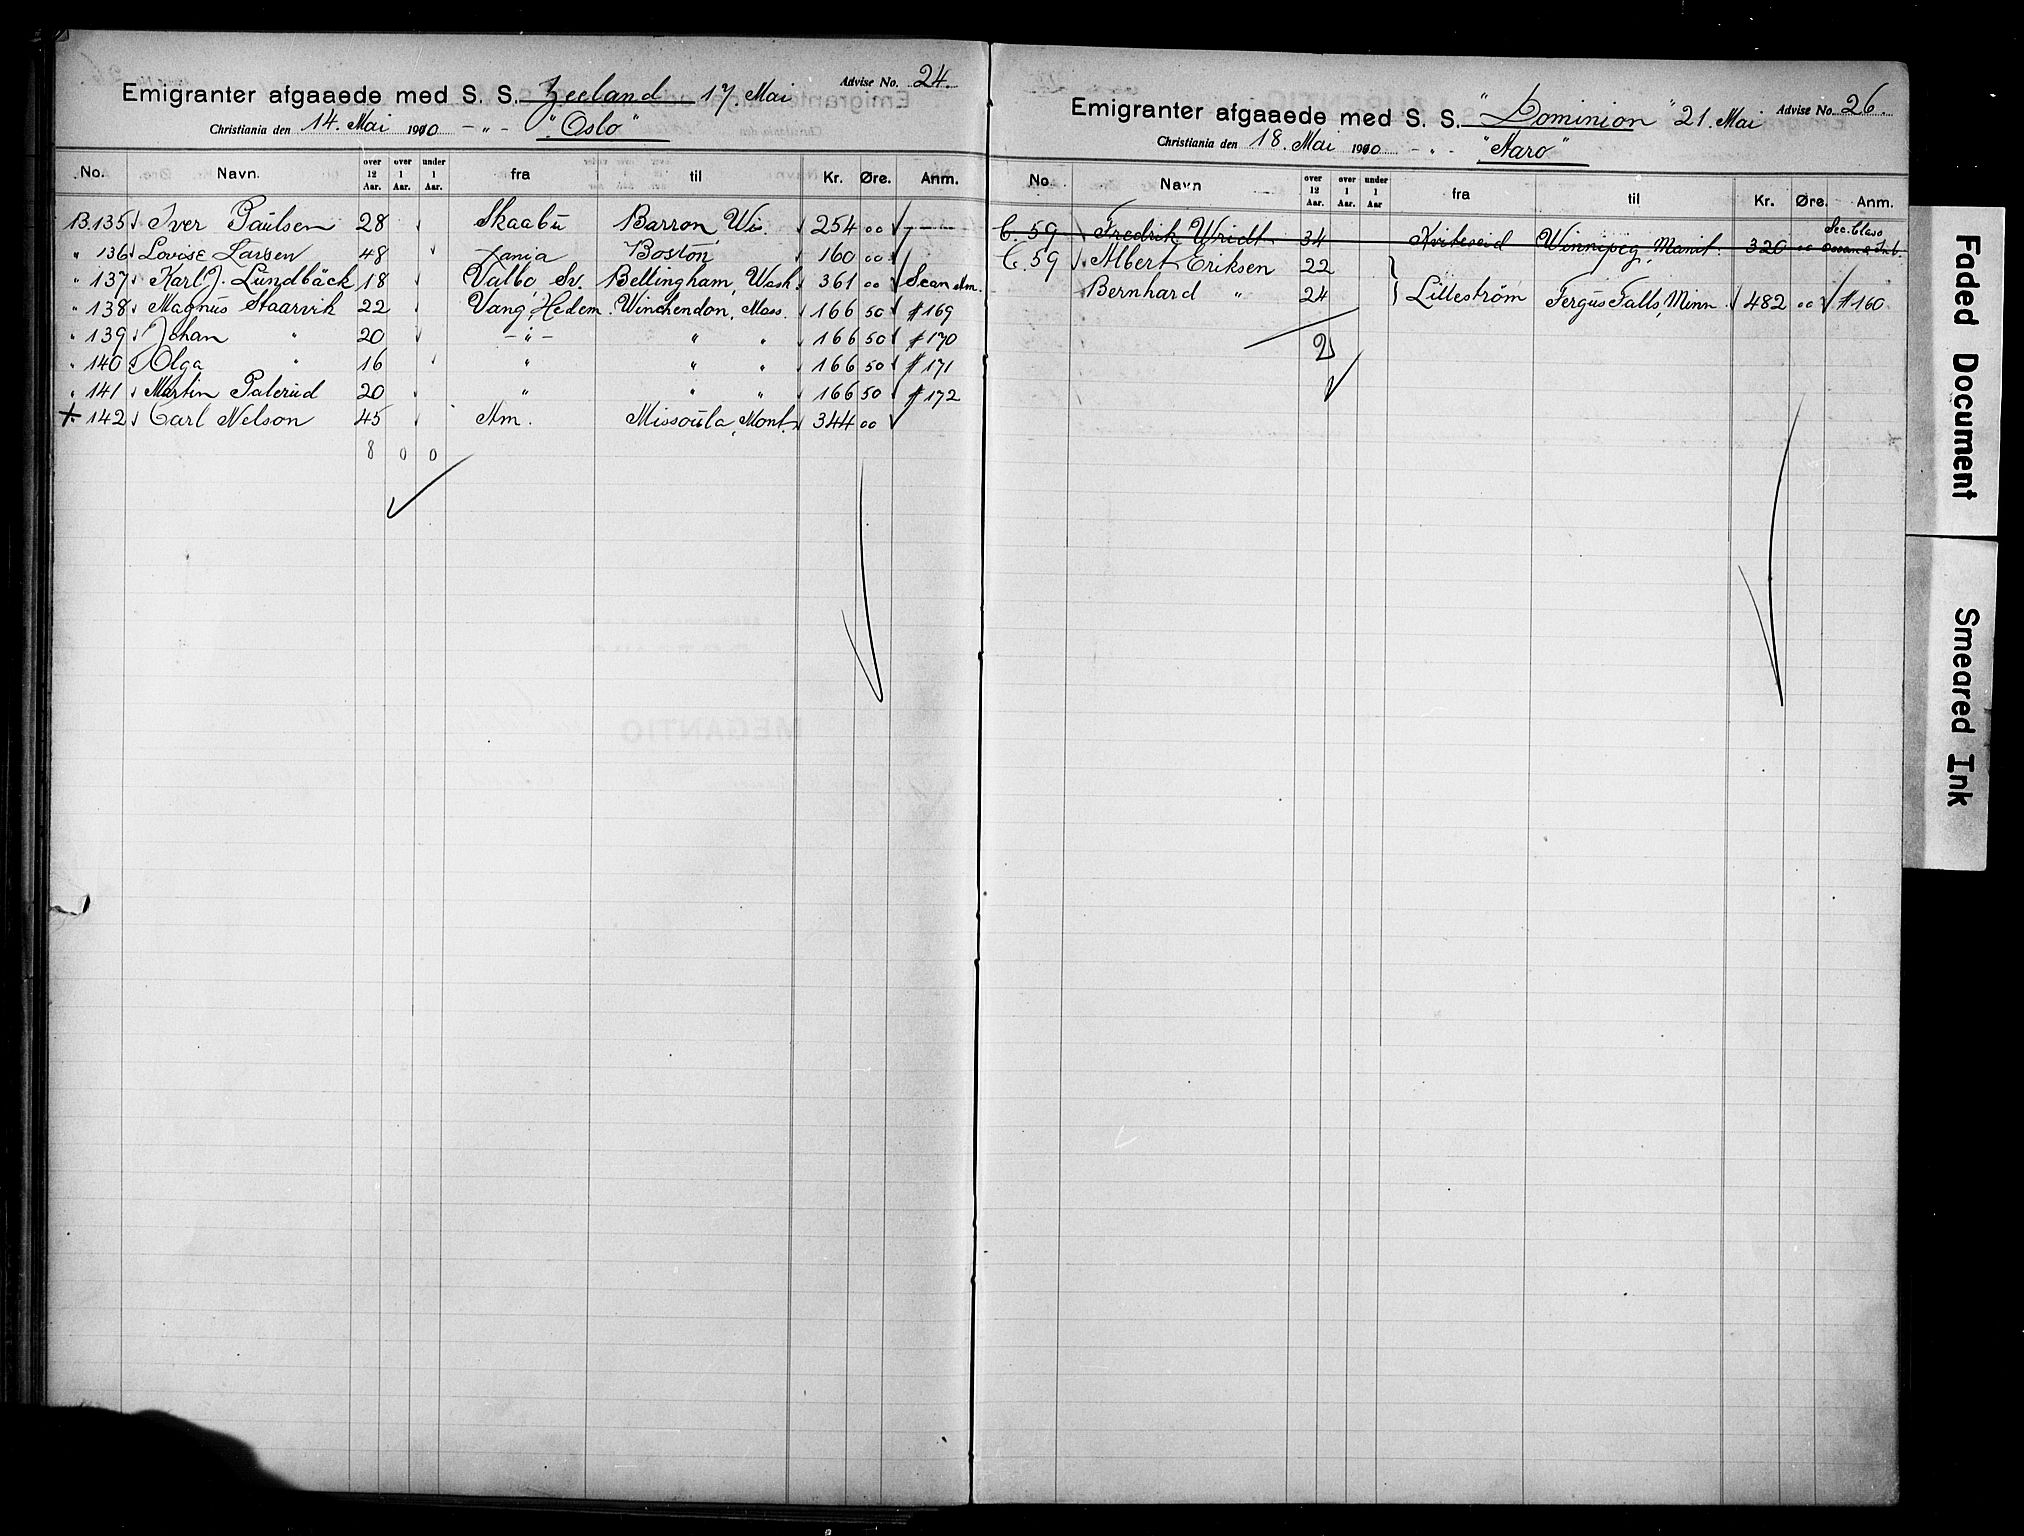 Advise No. 24.
Emigranter afgaaede med S. S. Zeeland 17. Mai
Christiania den 14. Mai 1910 - „ - "Oslo"
No. Navn. over 12 Aar. over 1 Aar. under 1 Aar. fra til Kr. Øre. Anm.
B. 135 Iver Paulsen 28 Skaabu Barron Wis. 254 00
" 136 Lovise Larsen 48 Xania Boston 160 00
" 137 Karl J. Lundbäck 18 Valbo Sv. Bellingham, Wash. 361 00 Scan Am.
" 138 Magnus Staarvik 22 Vang, Hedem. Winchendon, Mass. 166 50 # 169
" 139 Johan " 20 - " - " " 166 50 # 170
" 140 Olga " 16 " " " 166 50 # 171
" 141 Martin Palerud 20 " " " 166 50 # 172
+ 142 Carl Nelson 45 Am. Missoula, Mont. 344 00
8 0 0
Emigranter afgaaede med S. S. "Dominion" 21. Mai Advise No. 26.
Christiania den 18. Mai 1910 - „ - "Aaro"
No. Navn over 12 Aar. over 1 Aar. under 1 Aar fra til Kr. Øre. Anm.
C. 59 Fredrik Wridt 34 Kviteseid Winnipeg, Manit. 320 00 Sec. Class Ocean & Inl.
C. 59 Albert Eriksen 22
Bernhard " 24 Lillestrøm Fergus Falls, Minn. 482 00 # 160
2
MEGANTIC
Faded Document
Smeared Ink